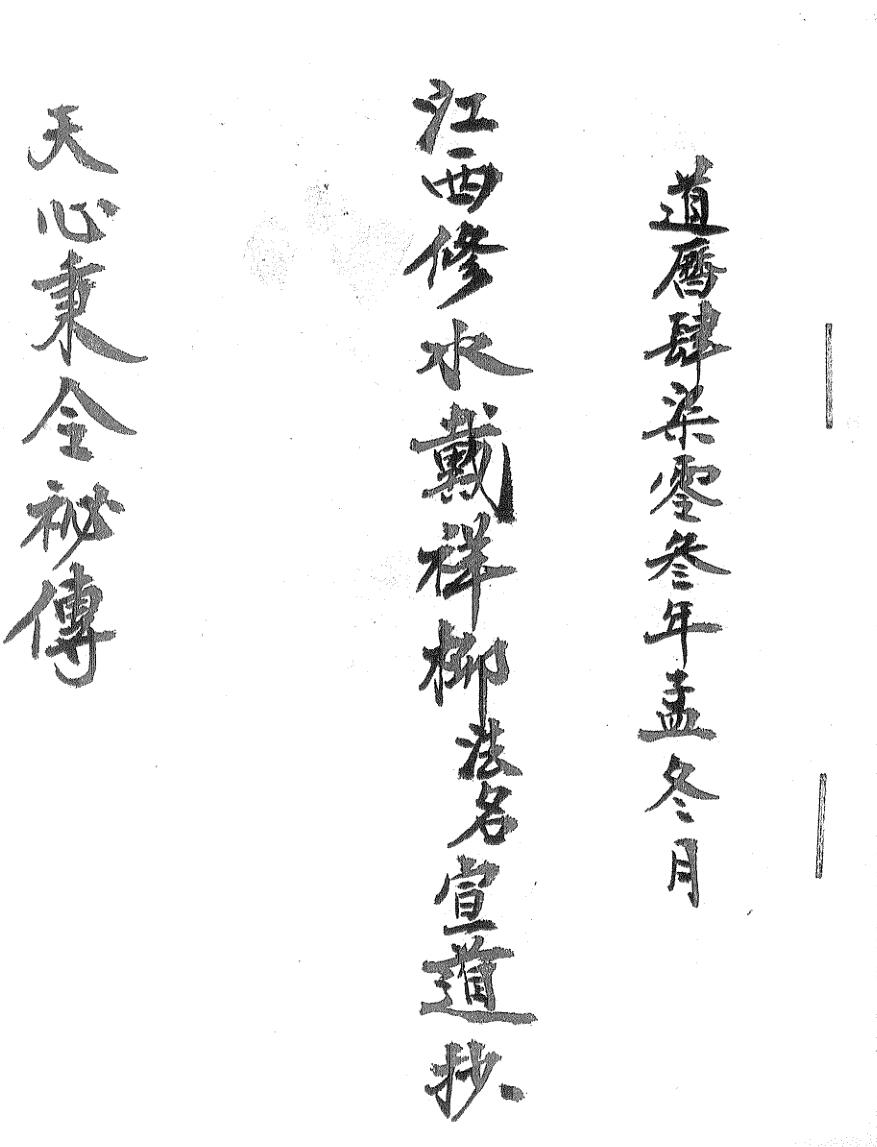 道曆肆柒零叁年孟冬月
江西修水戴祥柳法名宣道抄
天心秉令祕傳